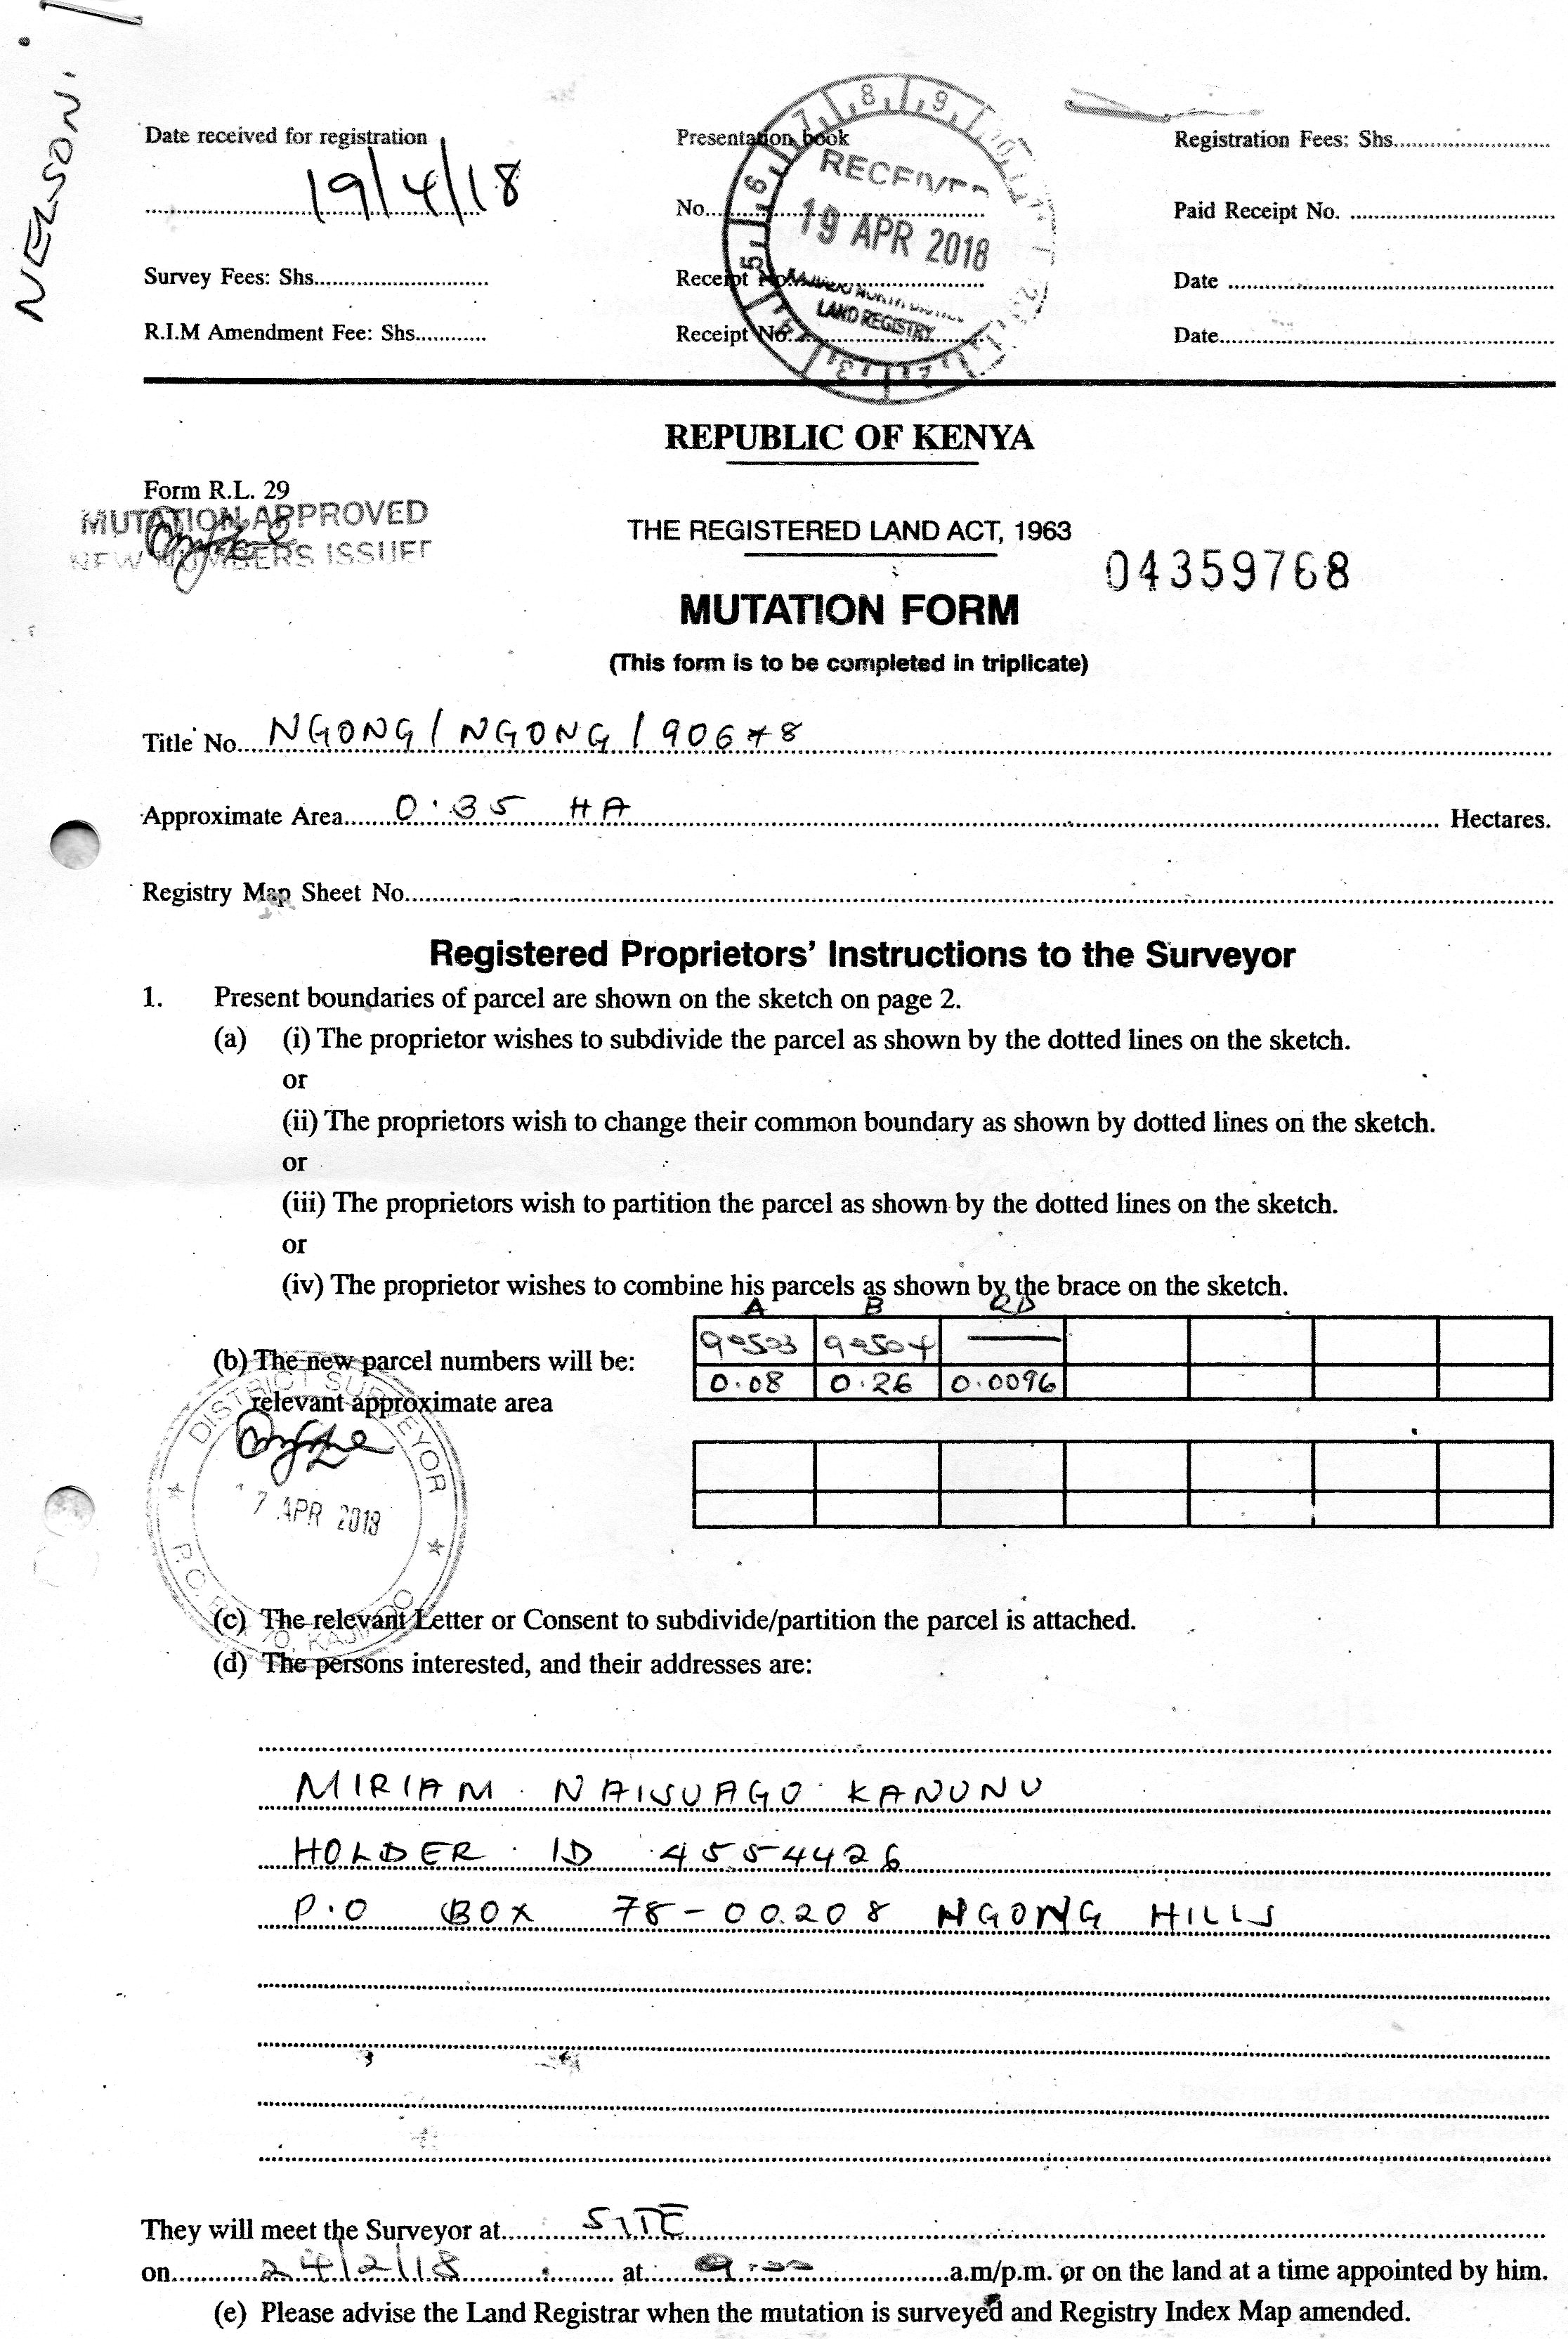 NELSON
Date received for registration
19/4/18
Presentation book
Registration Fees: Shs
No.
Paid Receipt No.
RECEIVED
19 APR 2018
LAND REGISTRY
Survey Fees: Shs
Receipt No.
Date
R.I.M Amendment Fee: Shs
Receipt No.
Date
REPUBLIC OF KENYA
Form R.L. 29
MUTATION APPROVED
NEW NUMBERS ISSUED
THE REGISTERED LAND ACT, 1963
04359768
MUTATION FORM
(This form is to be completed in triplicate)
Title No. NGONG / NGONG / 90678
Approximate Area 0.35 HA Hectares.
Registry Map Sheet No.
Registered Proprietors' Instructions to the Surveyor
1. Present boundaries of parcel are shown on the sketch on page 2.
(a) (i) The proprietor wishes to subdivide the parcel as shown by the dotted lines on the sketch.
or
(ii) The proprietors wish to change their common boundary as shown by dotted lines on the sketch.
or
(iii) The proprietors wish to partition the parcel as shown by the dotted lines on the sketch.
or
(iv) The proprietor wishes to combine his parcels as shown by the brace on the sketch.
A B RD
(b) The new parcel numbers will be: 90503 90504 —
relevant approximate area 0.08 0.26 0.0096
DISTRICT SURVEYOR
7 APR 2018
(c) The relevant Letter or Consent to subdivide/partition the parcel is attached.
(d) The persons interested, and their addresses are:
MIRIAM NAISUAGO KANUNU
HOLDER ID 4554426
P.O BOX 78-00208 NGONG HILLS
They will meet the Surveyor at SITE
on 24/2/18 at 9.00 a.m/p.m. or on the land at a time appointed by him.
(e) Please advise the Land Registrar when the mutation is surveyed and Registry Index Map amended.